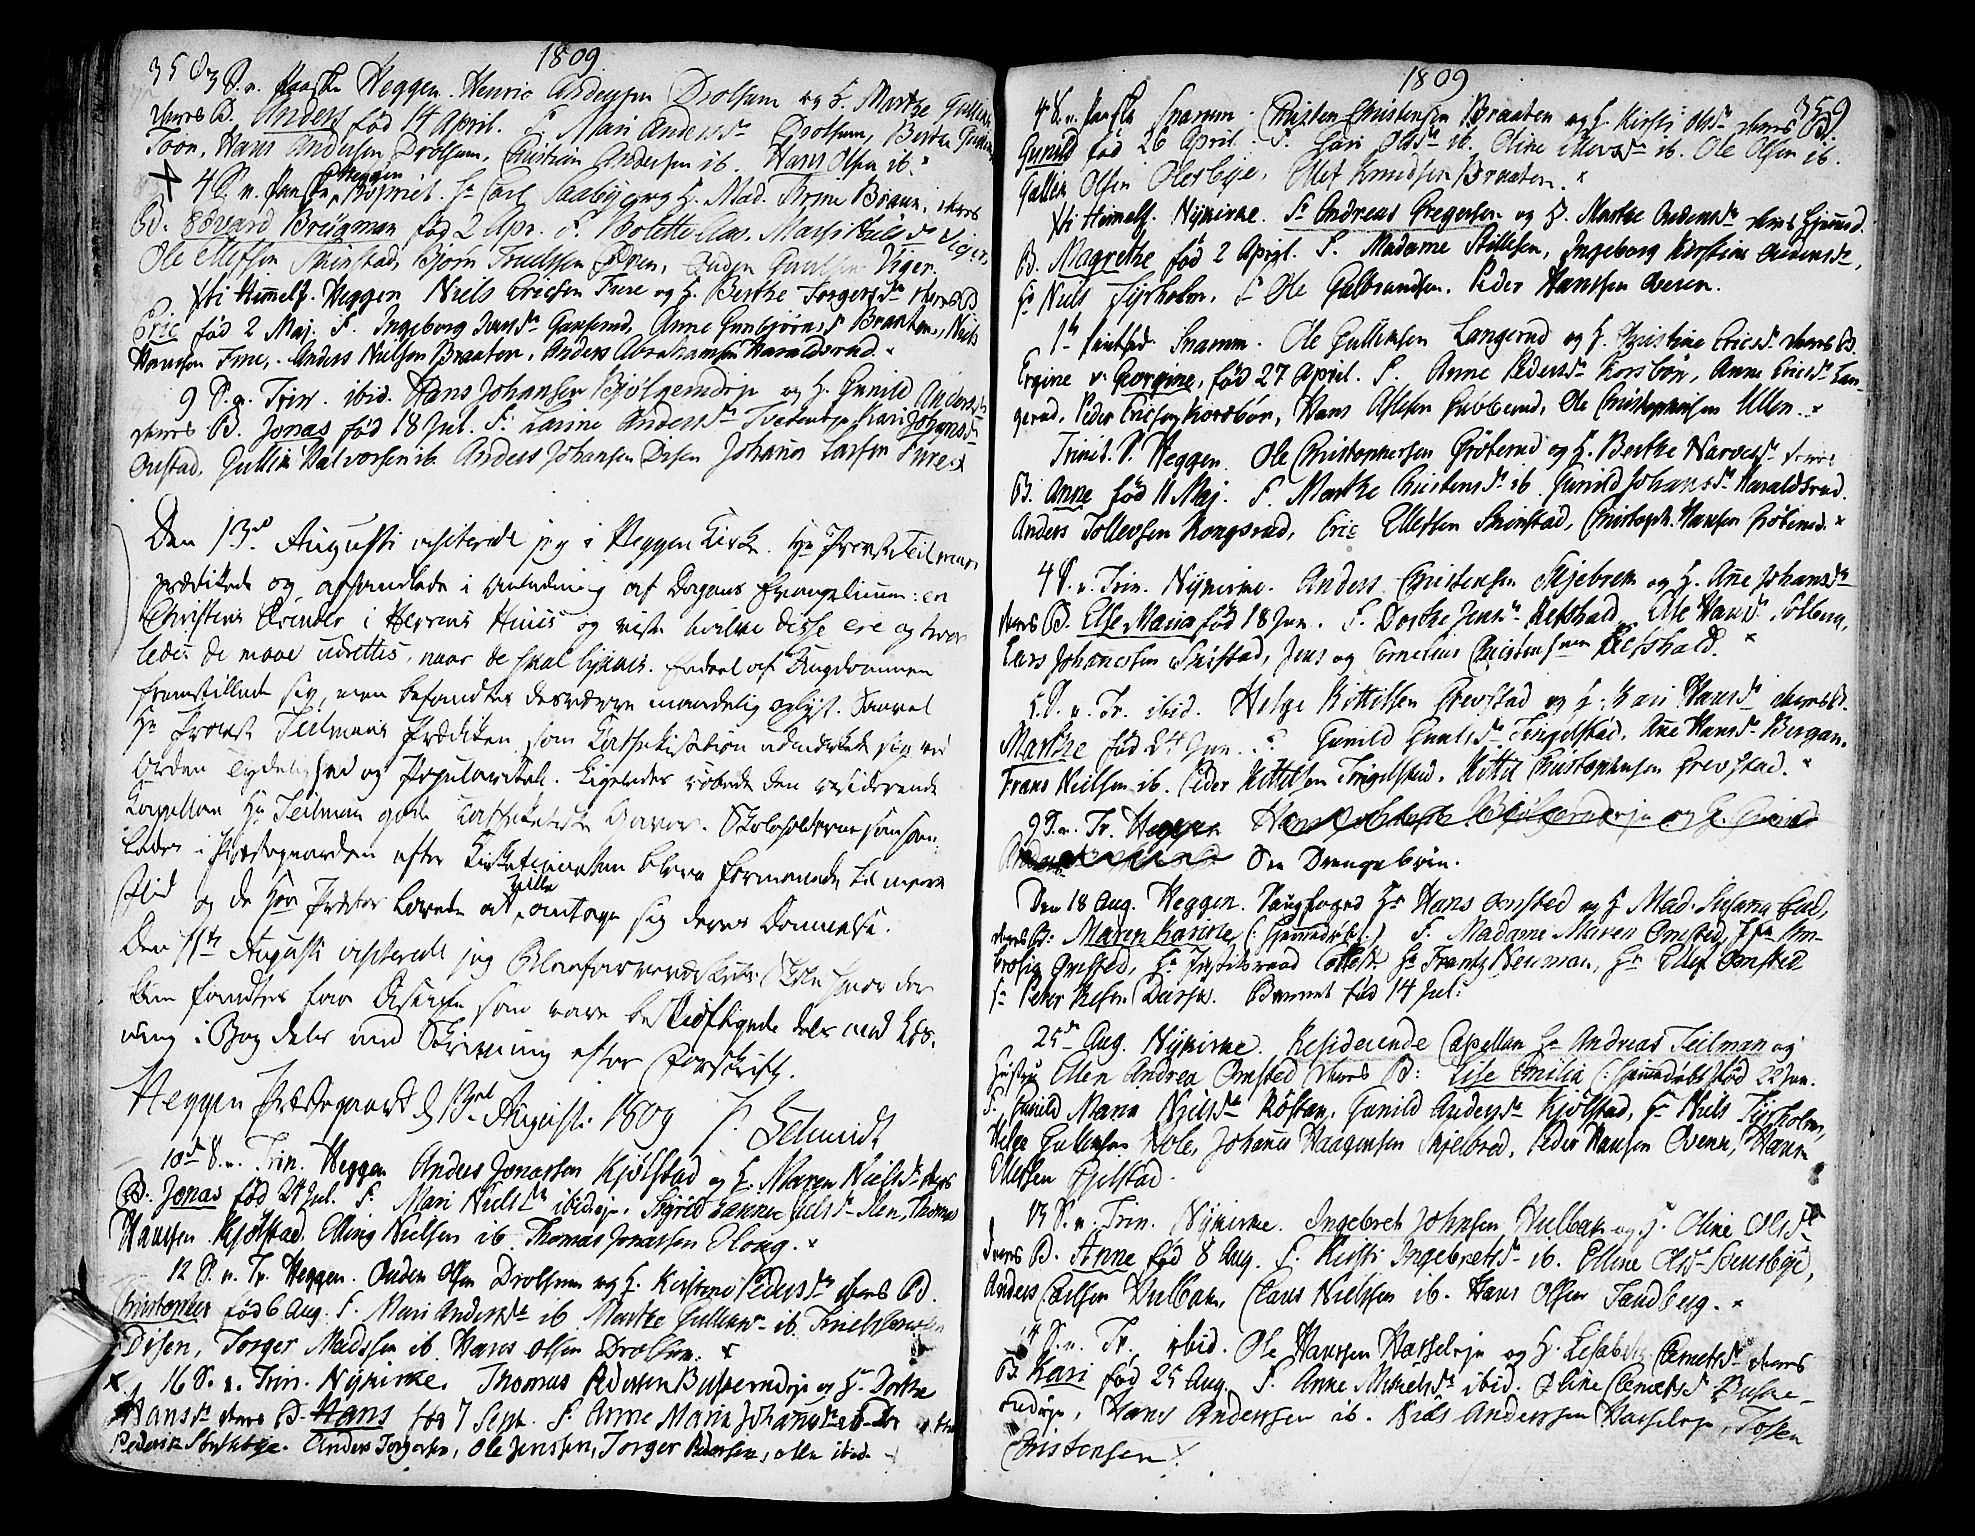 1809
358
3 S. v. Paaske Heggen. Henric Andersen Drolsum og H. Marthe Gulliks
deres B. Anders fød 14 April. F. Mari Andersdr Drolsum, Berthe
Toon, Hans Andersen Drolsum, Christian Andersen ib. Hans Olsen ib.
4 S. v. Paaske Heggen Hr Carl Saabye og H. Mad. Anne Bruun, deres
B. Edvard Brügman fød 2 Apr. F.
Ole Ellefsen Skinstad, Bjørn Truelssen Viger.
Xti Himelf. Heggen Niels Ericsen Fure og H. Berthe Torgersdr deres B
Eric fød 2 Maj. F. Ingeborg Jensdr Gunbjørnsdr Braaten, Niels
Hanssen Fure, Anders Nielsen Braaten, Anders Abrahamsen Haraldsrud.
9 S. v. Trin. ibid. Hans Johansen Bjølgerudeje og H. Gunild Andersdr
deres B. Jonas fød 18 Jul. F. Karine Andersdr Kari Johansdr
Onstad, Gullik Halvorsen ib. Anders Johansen Disen Johannes Larsen Fure
Den 13de Augusti visiterede jeg i Heggen Kirke. Hr Provst Teilman
prædikede og afhandlede i Anledning af Dagens Evangelium: en
Christens Ærinder i Herrens Huus og viste hvilke disse ere og hvor
ledes de maae udrettes, naar de skal lykkes. Endeel af Ungdommen
fremstillede sig, men befandtes desværre maadelig oplyst. Saavel
Hr Provst Teilmans Prædiken som Catechisation udmærkede sig ved
Orden Tydelighed og Popularitet. Ligeledes røbede den residerende
Capellan Hr Teilman gode catechetiske Gaver. Skoleholderne
i Præstegaarden efter Kirketjenesten bleve formanede til mere
Flid og de Hrr Præster lovede at ville antage sig deres Dannelse.
Den 11te Augusti visiterede jeg Blaafarveværkets Skole hvor der
kun fandtes faa Discipler som vare beskjeftigede deels med Læs-
ning i Bog deels med Skrivning efter Forskrift.
Heggen Præstegaard d 13de Augusti 1809 F. Schmidt
10de S. v. Trin. Heggen Anders Jonassen Kjølstad og H. Maren Nielsdr deres
B. Jonas fød 24 Jul. F. Mari Nielsdr ibideje. Sigrid Nielsdr Thomas
Hanssen Kjølstad, Elling Nielsen ib. Thomas Jonassen
12 S. v. Tr. Heggen. Ouden Olsen Drolsum og H. Kirstine Pedersdr deres B.
Christopher fød 6 Aug. F. Mari Andersdr ib Marthe ib. Truels
Disen, Torger Madssen ib Hans Olsen Drolsum.
16 S. v. Trin. Nykirke. Thomas Pedersen Buskerudeje og H. Dorthe
Hansdr deres B. Hans fød 7 Sept. F. Anne Maria Johansdr ib
Anders Torgersen, Ole Jenssen, Torger Pedersen, alle ibid
1809
359
4 S. v. Paaske Snarum. Christen Christensen Braaten og H. Kirsti Olsdr deres B.
Gunild fød 26 April. F. Gari Olsdr ib. Oline ib. Ole Olsen ib.
Gullik Olsen Olerbye, Ellef Knudsen Braaten.
Xti Himelf. Nykirke. Sr Andreas Gregersen og H. Marthe Andersdr deres
B. Magrethe fød 2 April. F. Madame Stillesen, Ingeborg Kirstine Andersdr,
Hr Niels Tyrholm, Sr Ole Gulbrandsen. Peder Hanssen Overn.
1ste Pintsed. Snarum. Ole Gulliksen Langerud og H. Christine Ericsdr deres B.
Ergine v. Gorgine, fød 27 April. F. Anne Pedersdr Korsbøn, Anne Ericsdr Lan-
gerud, Peder Ericsen Korsbøn, Hans Aslesen Gubberud, Ole Christophersen Ullern.
Trinit. S. Heggen. Ole Christophersen Grøterud og H. Berthe Narvesdr deres
B. Anne fød 11 Maj. F. Marthe Christensdr ib Gunild Johansdr Haraldsrud.
Anders Tollevsen Kongsrud, Eric Ellefsen Skinstad, Christoph. Hansen Grøterud.
4 S. v. Trin. Nykirke. Anders Christensen Skjebrek og H. Ane Johansdr
deres B. Else Maria fød 18 Jun. F. Dorthe Jensdr Refshald, Else Hansdr Solberg,
Lars Johanessen Skistad, Jens og Cornelius Christensen Refshald.
5 S. v. Tr. ibid. Helge Kittilsen Grevstad og H. Kari Hansdr deres B.
Marthe fød 24 Jun. F. Gunild Tingelstad, Ane Hansdr Bergan.
Frans Nielsen ib. Peder Kittilsen Tingelstad. Kittil Christophersen Grevstad.
9 S. v. Tr. Heggen Hans Johansen Bjølgerudeje og H. Gunild
See Drengebørn.
Den 18 Aug. Heggen. Hr Hans Omsted og H Mad. Susanna
deres B: Maren Karine (: hjemmedøbt:) F. Madame Maren Omsted, Am-
brosia Omsted, Hr Justitsraad Collett. Hr Frantz Neuman, Hr Ellef Omsted
Sr Peter Barnet fød 14 Jul:
25de Aug. Nykirke. Residerende Capellan Hr Andreas Teilman og
Hustru Elen Andrea Omsted deres B: Lise Emilia (: hjemmedøbt fød 22 Jun.
F. Gunild Maria Nielsdr Røstan, Gunild Andersdr Kjølstad, Hr Niels Tyrholm,
Helge Gulliksen Hole, Johannes Haagensen Skjelbred, Peder Hansen Overn, Hans
Ellefsen Gjelstad.
13 S. v. Trin. Nykirke. Ingebret Johnsen Hulbak og H. Oline Olsdr
deres B. Anne fød 8 Aug. F. Kirsti Ingebretsdr ib. Elline Olsdr
Anders Hulbak, Claus Nielsen ib. Hans Olsen Sandberg.
14 S. v. Tr. ibid. Ole Hanssen Hasseleje og H. Lisabeth Clemetsdr deres
B. Kari fød 25 Aug. F. Anne Mikelsdr ibid. Oline Clemetsdr Buske-
rudeje, Hans Anderssen ib. Niels Anderssen Hasseleje,
Christensen